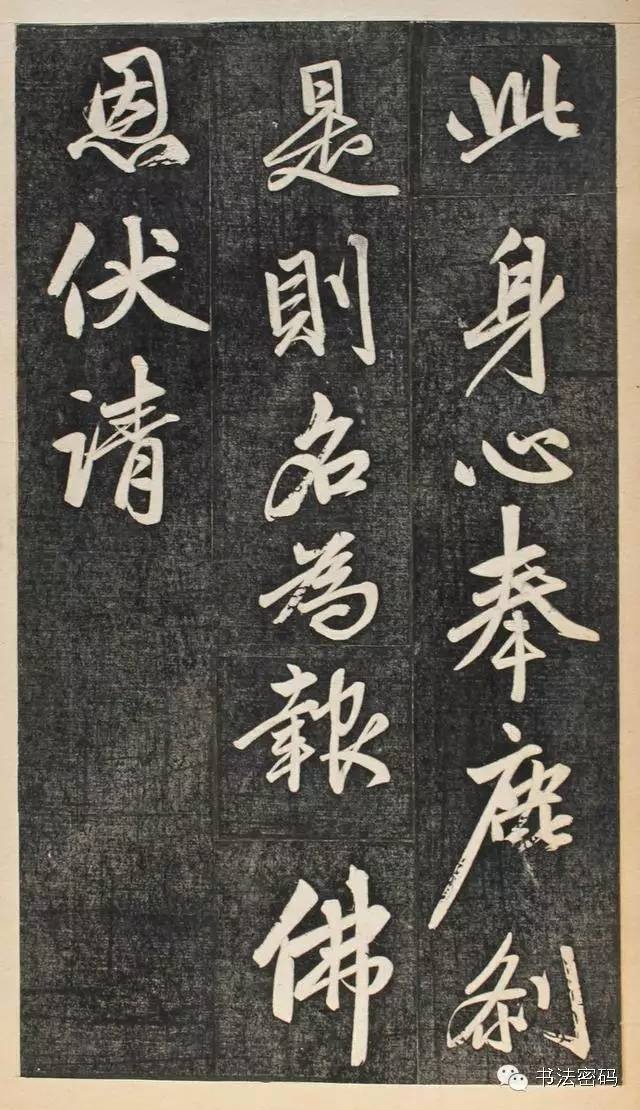 此身心奉塵剎
是則名為報佛
恩伏請
书法密码